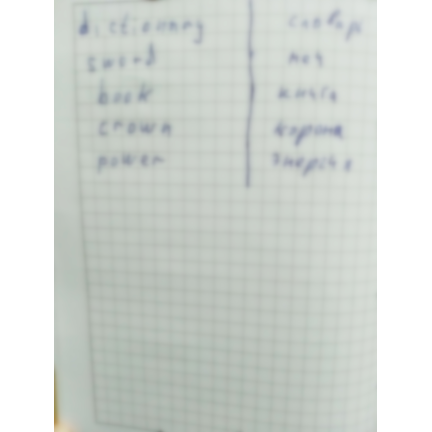 dictionary словарь
sword меч
book книга
crown корона
power энергия